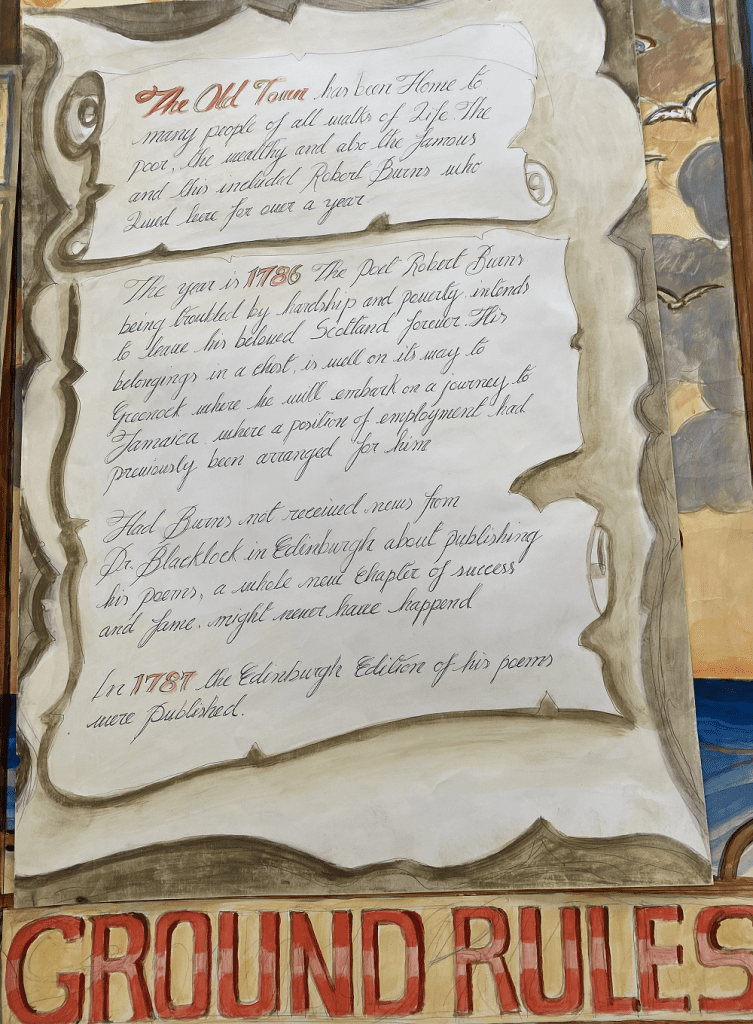 The Old Town has been Home to
many people of all walks of Life. The
poor, the wealthy and also the famous
and this included Robert Burns who
Lived here for over a year
The year is 1786 The Poet Robert Burns
being troubled by hardship and poverty intends
to leave his beloved Scotland forever. His
belongings in a chest, is well on its way to
Greenock where he will embark on a journey to
Jamaica where a position of employment had
previously been arranged for him
Had Burns not received news from
Dr. Blacklock in Edinburgh about publishing
his poems, a whole new Chapter of success
and fame. might never have happend
In 1787 the Edinburgh Edition of his poems
were Published.
GROUND RULES